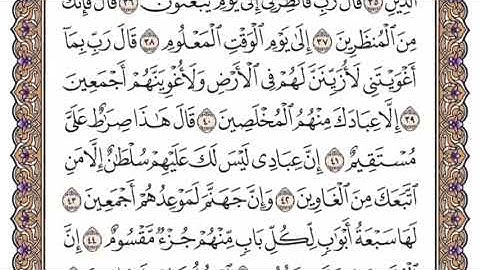 ٱلدِّينِ ٣٥ قَالَ رَبِّ فَأَنظِرْنِىٓ إِلَىٰ يَوْمِ يُبْعَثُونَ ٣٦ قَالَ فَإِنَّكَ
مِنَ ٱلْمُنظَرِينَ ٣٧ إِلَىٰ يَوْمِ ٱلْوَقْتِ ٱلْمَعْلُومِ ٣٨ قَالَ رَبِّ بِمَآ
أَغْوَيْتَنِى لَأُزَيِّنَنَّ لَهُمْ فِى ٱلْأَرْضِ وَلَأُغْوِيَنَّهُمْ أَجْمَعِينَ
٣٩ إِلَّا عِبَادَكَ مِنْهُمُ ٱلْمُخْلَصِينَ ٤٠ قَالَ هَٰذَا صِرَٰطٌ عَلَىَّ
مُسْتَقِيمٌ ٤١ إِنَّ عِبَادِى لَيْسَ لَكَ عَلَيْهِمْ سُلْطَٰنٌ إِلَّا مَنِ
ٱتَّبَعَكَ مِنَ ٱلْغَاوِينَ ٤٢ وَإِنَّ جَهَنَّمَ لَمَوْعِدُهُمْ أَجْمَعِينَ ٤٣
لَهَا سَبْعَةُ أَبْوَٰبٍ لِّكُلِّ بَابٍ مِّنْهُمْ جُزْءٌ مَّقْسُومٌ ٤٤ إِنَّ